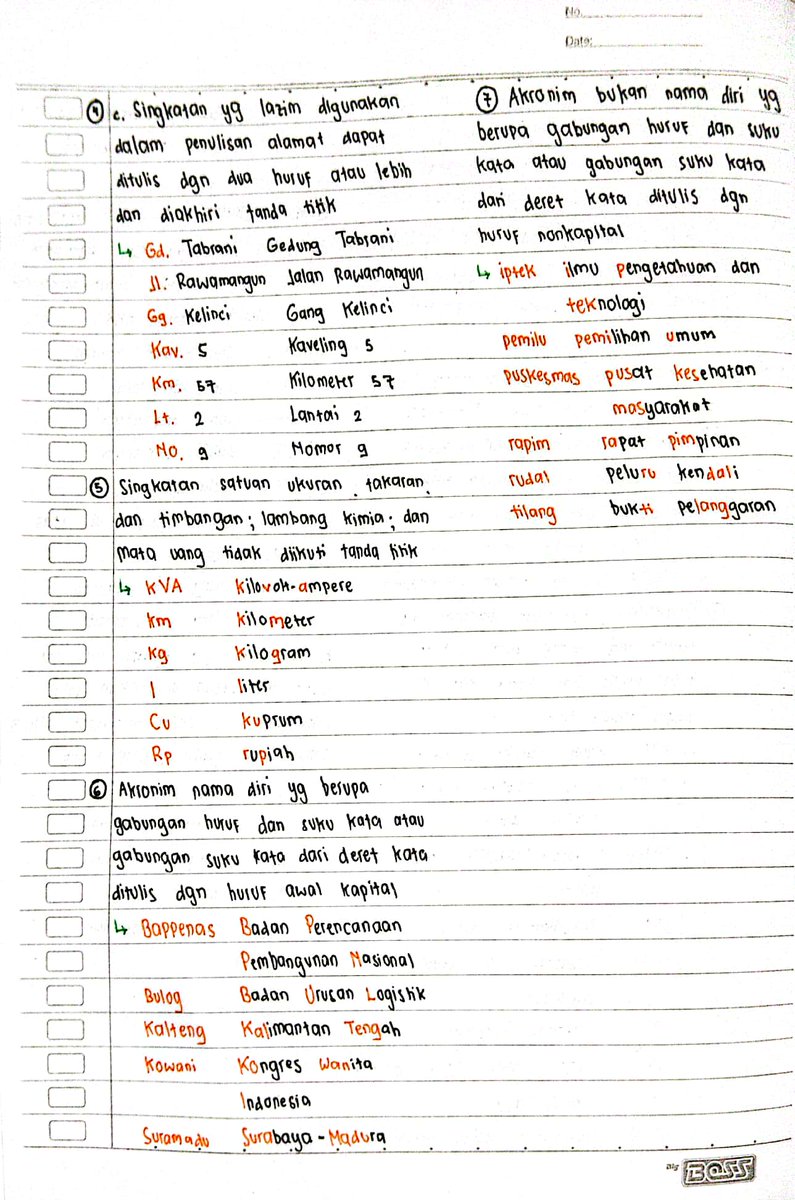 No.
Date:
④ c. Singkatan yg lazim digunakan
dalam penulisan alamat dapat
ditulis dgn dua huruf atau lebih
dan diakhiri tanda titik
↳ Gd. Tabrani Gedung Tabrani
Jl. Rawamangun Jalan Rawamangun
Gg. Kelinci Gang Kelinci
Kav. 5 Kaveling 5
Km. 57 Kilometer 57
Lt. 2 Lantai 2
No. 9 Nomor 9
⑤ Singkatan satuan ukuran, takaran,
dan timbangan; lambang kimia; dan
mata uang tidak diikuti tanda titik
↳ KVA kilovolt-ampere
km kilometer
kg kilogram
l liter
Cu kuprum
Rp rupiah
⑥ Akronim nama diri yg berupa
gabungan huruf dan suku kata atau
gabungan suku kata dari deret kata
ditulis dgn huruf awal kapital
↳ Bappenas Badan Perencanaan
Pembangunan Nasional
Bulog Badan Urusan Logistik
Kalteng Kalimantan Tengah
Kowani Kongres Wanita
Indonesia
Suramadu Surabaya - Madura
⑦ Akronim bukan nama diri yg
berupa gabungan huruf dan suku
kata atau gabungan suku kata
dari deret kata ditulis dgn
huruf nonkapital
↳ iptek ilmu pengetahuan dan
teknologi
pemilu pemilihan umum
puskesmas pusat kesehatan
masyarakat
rapim rapat pimpinan
rudal peluru kendali
tilang bukti pelanggaran
Big BOSS